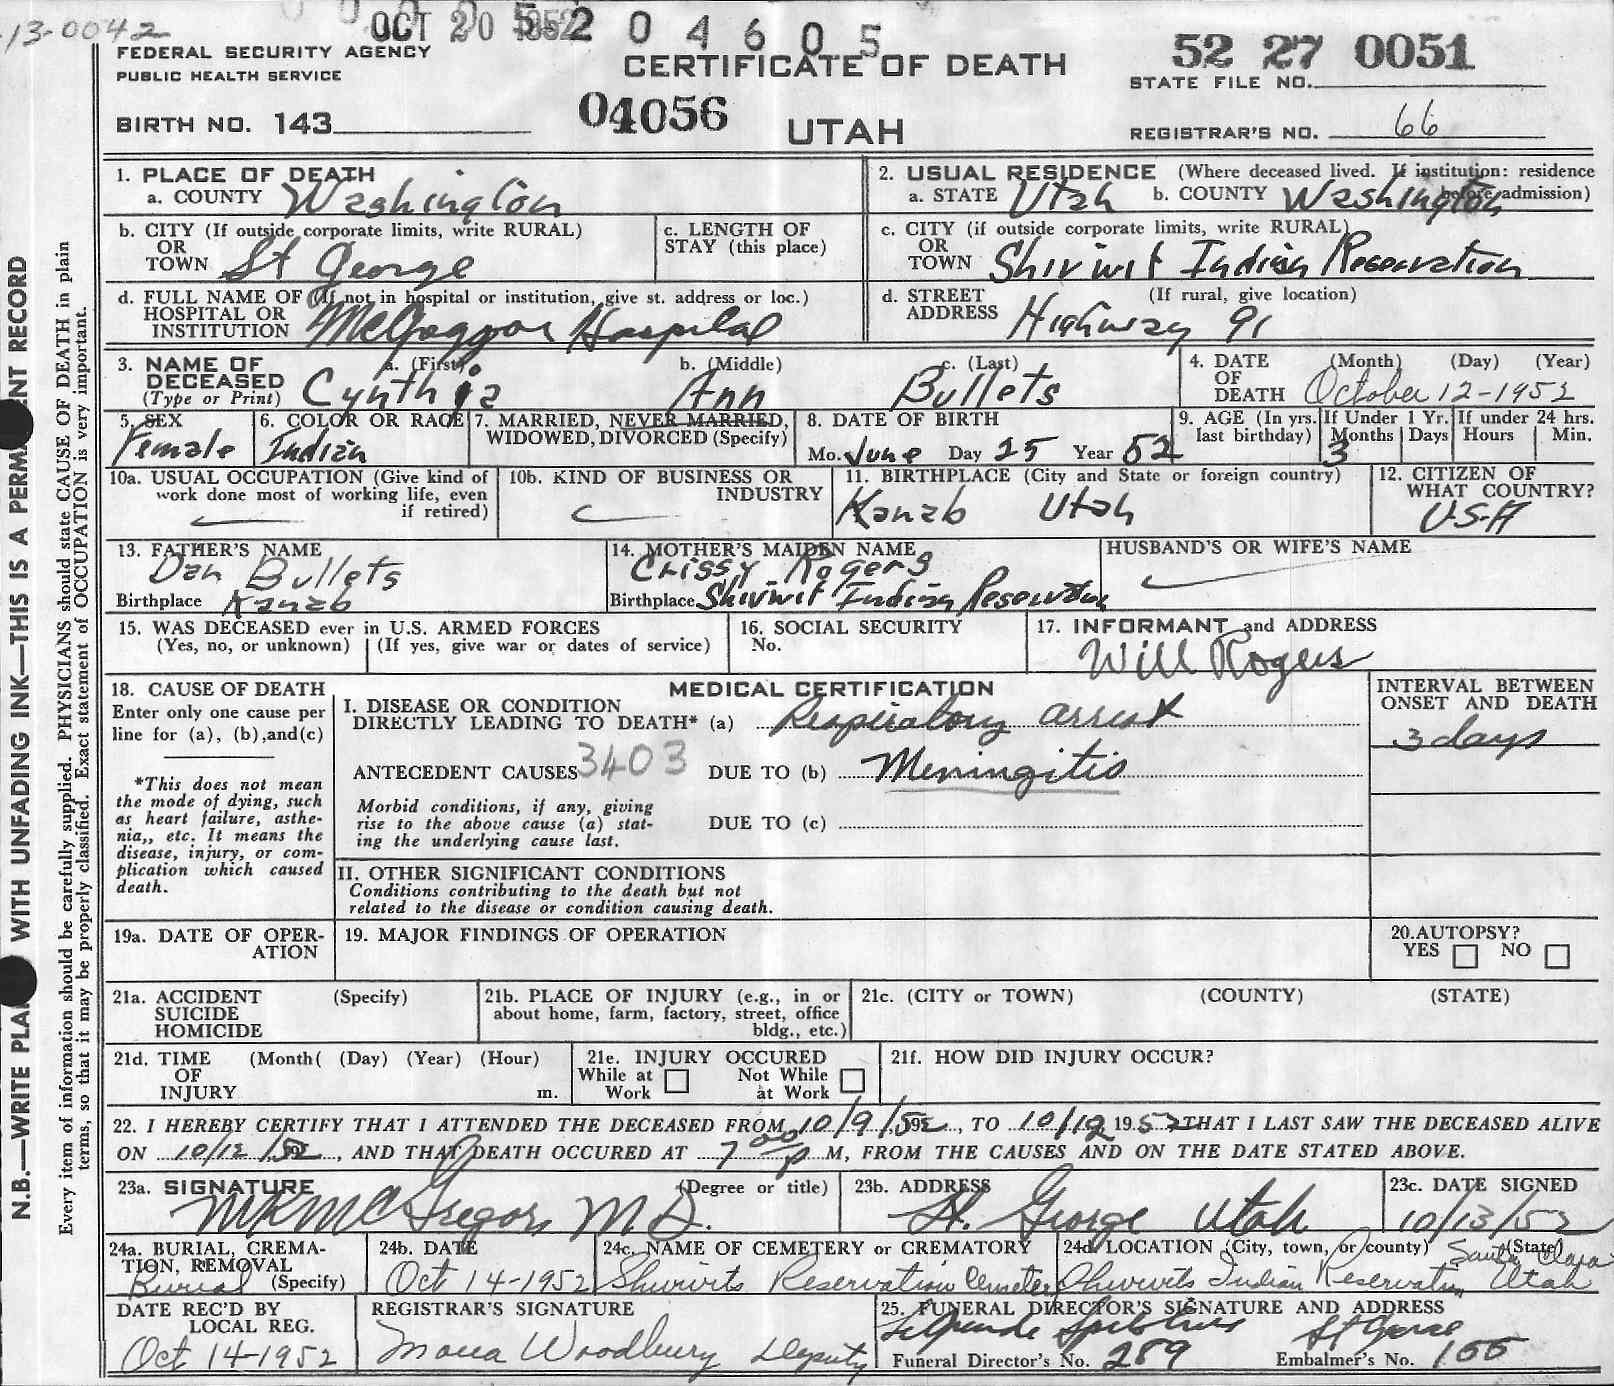 13-0042
OCT 20 1952
52 04605
FEDERAL SECURITY AGENCY
PUBLIC HEALTH SERVICE
CERTIFICATE OF DEATH
52 27 0051
STATE FILE NO.
BIRTH NO. 143
04056
UTAH
REGISTRAR'S NO. 66
1. PLACE OF DEATH
a. COUNTY Washington
2. USUAL RESIDENCE (Where deceased lived. If institution: residence before admission)
a. STATE Utah b. COUNTY Washington
b. CITY (If outside corporate limits, write RURAL)
OR
TOWN St George
c. LENGTH OF
STAY (this place)
c. CITY (if outside corporate limits, write RURAL)
OR
TOWN Shivwit Indian Reservation
d. FULL NAME OF (If not in hospital or institution, give st. address or loc.)
HOSPITAL OR
INSTITUTION McGreggor Hospital
d. STREET (If rural, give location)
ADDRESS Highway 91
3. NAME OF
DECEASED
(Type or Print)
a. (First) Cynthia
b. (Middle) Ann
c. (Last) Bullets
4. DATE (Month) (Day) (Year)
OF
DEATH October 12-1952
5. SEX
Female
6. COLOR OR RACE
Indian
7. MARRIED, NEVER MARRIED,
WIDOWED, DIVORCED (Specify)
8. DATE OF BIRTH
Mo. June Day 25 Year 52
9. AGE (In yrs. last birthday)
If Under 1 Yr. Months 3 Days
If under 24 hrs. Hours Min.
10a. USUAL OCCUPATION (Give kind of
work done most of working life, even
if retired)
10b. KIND OF BUSINESS OR
INDUSTRY
11. BIRTHPLACE (City and State or foreign country)
Kanab Utah
12. CITIZEN OF
WHAT COUNTRY?
U-S-A
13. FATHER'S NAME
Dan Bullets
Birthplace Kanab
14. MOTHER'S MAIDEN NAME
Crissy Rogers
Birthplace Shivwit Indian Reservation
HUSBAND'S OR WIFE'S NAME
15. WAS DECEASED ever in U.S. ARMED FORCES
(Yes, no, or unknown) (If yes, give war or dates of service)
16. SOCIAL SECURITY
No.
17. INFORMANT and ADDRESS
Will Rogers
18. CAUSE OF DEATH
Enter only one cause per
line for (a), (b), and (c)
*This does not mean
the mode of dying, such
as heart failure, asthe-
nia,, etc. It means the
disease, injury, or com-
plication which caused
death.
MEDICAL CERTIFICATION
I. DISEASE OR CONDITION
DIRECTLY LEADING TO DEATH* (a) Respiratory arrest
ANTECEDENT CAUSES 3403 DUE TO (b) Meningitis
Morbid conditions, if any, giving
rise to the above cause (a) stat-
ing the underlying cause last.
DUE TO (c)
INTERVAL BETWEEN
ONSET AND DEATH
3 days
II. OTHER SIGNIFICANT CONDITIONS
Conditions contributing to the death but not
related to the disease or condition causing death.
19a. DATE OF OPER-
ATION
19. MAJOR FINDINGS OF OPERATION
20. AUTOPSY?
YES NO
21a. ACCIDENT (Specify)
SUICIDE
HOMICIDE
21b. PLACE OF INJURY (e.g., in or
about home, farm, factory, street, office
bldg., etc.)
21c. (CITY or TOWN) (COUNTY) (STATE)
21d. TIME (Month( (Day) (Year) (Hour)
OF
INJURY m.
21e. INJURY OCCURED
While at Work
Not While at Work
21f. HOW DID INJURY OCCUR?
22. I HEREBY CERTIFY THAT I ATTENDED THE DECEASED FROM 10/9/52, TO 10/12 1952 THAT I LAST SAW THE DECEASED ALIVE
ON 10/12/52, AND THAT DEATH OCCURED AT 7 00 P M, FROM THE CAUSES AND ON THE DATE STATED ABOVE.
23a. SIGNATURE (Degree or title)
McGregor M.D.
23b. ADDRESS
St. George Utah
23c. DATE SIGNED
10/13/52
24a. BURIAL, CREMA-
TION, REMOVAL
Burial (Specify)
24b. DATE
Oct 14-1952
24c. NAME OF CEMETERY or CREMATORY
Shivwits Reservation Cemetery
24d. LOCATION (City, town, or county) (State)
Shivwits Indian Reservation Santa Clara Utah
DATE REC'D BY
LOCAL REG.
Oct 14-1952
REGISTRAR'S SIGNATURE
Woodbury Deputy
25. FUNERAL DIRECTOR'S SIGNATURE AND ADDRESS
St George
Funeral Director's No. 289 Embalmer's No. 155
N.B.—WRITE WITH UNFADING INK—THIS IS A RECORD
Every item of information should be carefully supplied. PHYSICIANS should state CAUSE OF DEATH in plain
terms, so that it may be properly classified. Exact statement of OCCUPATION is very important.